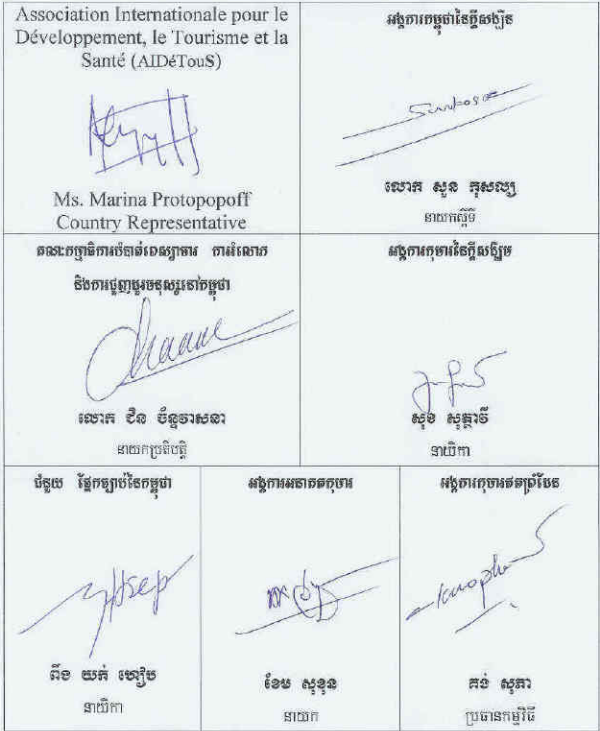 Association Internationale pour le
Développement, le Tourisme et la
Santé (AIDéTouS)
Ms. Marina Protopopoff
Country Representative
អង្គការកម្ពុជានៃក្តីសង្ឃឹម
លោក សួន កុសល្យ
នាយកស្តីទី
គណៈកម្មាធិការបំបាត់ពេស្យាចារ ការរំលោភ
និងការជួញដូរមនុស្សនៅកម្ពុជា
លោក ជិន ច័ន្ទវាសនា
នាយកប្រតិបត្តិ
អង្គការកុមារនៃក្តីសង្ឃឹម
សុខ សុភាវី
នាយិកា
ជំនួយ ផ្នែកច្បាប់នៃកម្ពុជា
ពឹង យក់ ហៀប
នាយិកា
អង្គការអនាគតកុមារ
ខែម សុខុន
នាយក
អង្គការកុមារឥតព្រំដែន
គង់ សុភា
ប្រធានកម្មវិធី